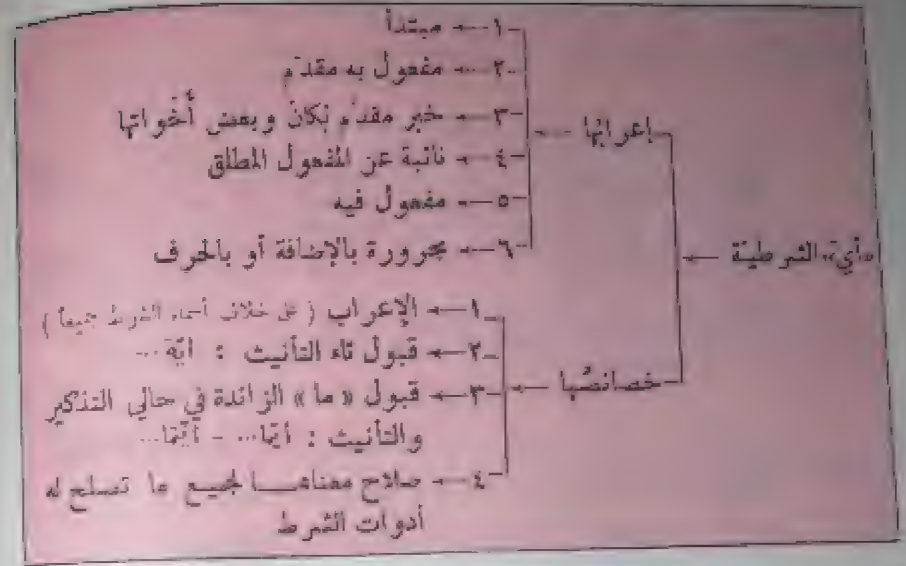 ١ ← مبتدأ
٢ ← مفعول به مقدّم
٣ ← خبر مقدّم لكان وبعض أخواتها
إعرابُها ←
٤ ← نائبة عن المفعول المطلق
٥ ← مفعول فيه
٦ ← مجرورة بالإضافة أو بالحرف
«أيّ» الشرطيّة ←
١ ← الإعراب ( على خلاف أسماء الشرط جميعاً )
٢ ← قبول تاء التأنيث : ايّة ...
خصائصُها ←
٣ ← قبول « ما » الزائدة في حالي التذكير
والتأنيث : أيّما... - أيّتما...
٤ ← صلاح معناهـا لجميع ما تصلح له
أدوات الشرط